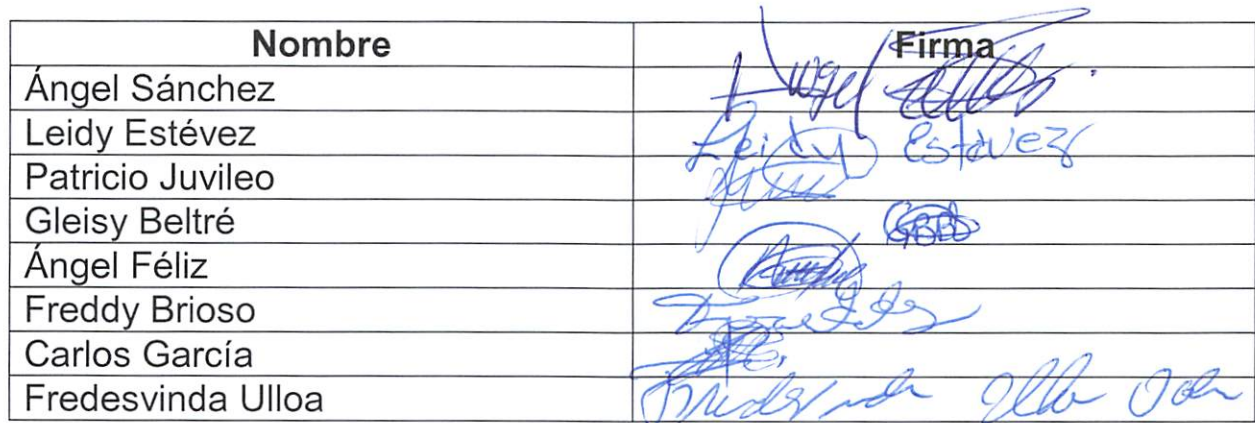 Nombre Firma
Ángel Sánchez Angel
Leidy Estévez Leidy Estévez
Patricio Juvileo
Gleisy Beltré
Ángel Féliz
Freddy Brioso
Carlos García
Fredesvinda Ulloa Fredesvinda Ulloa